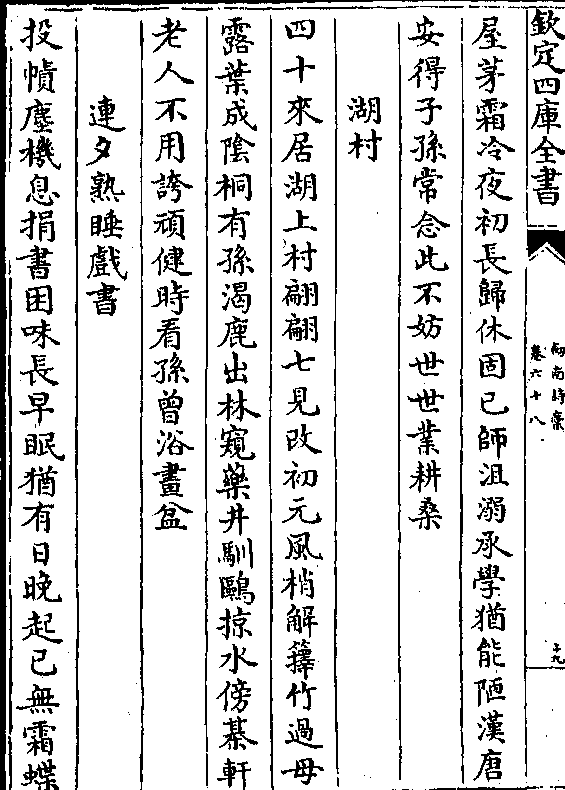 欽定四庫全書
劍南詩稾
卷六十八
十九
屋茅霜冷夜初長歸休固已師沮溺承學猶能陋漢唐
安得子孫常念此不妨世世業耕桑
湖村
四十來居湖上村翩翩七見改初元風梢解籜竹過母
露葉成陰桐有孫渴鹿出林窺藥井馴鷗掠水傍棊軒
老人不用誇頑健時看孫曾浴畫盆
連夕熟睡戲書
投幘塵機息捐書困味長早眠猶有日晚起已無霜蝶